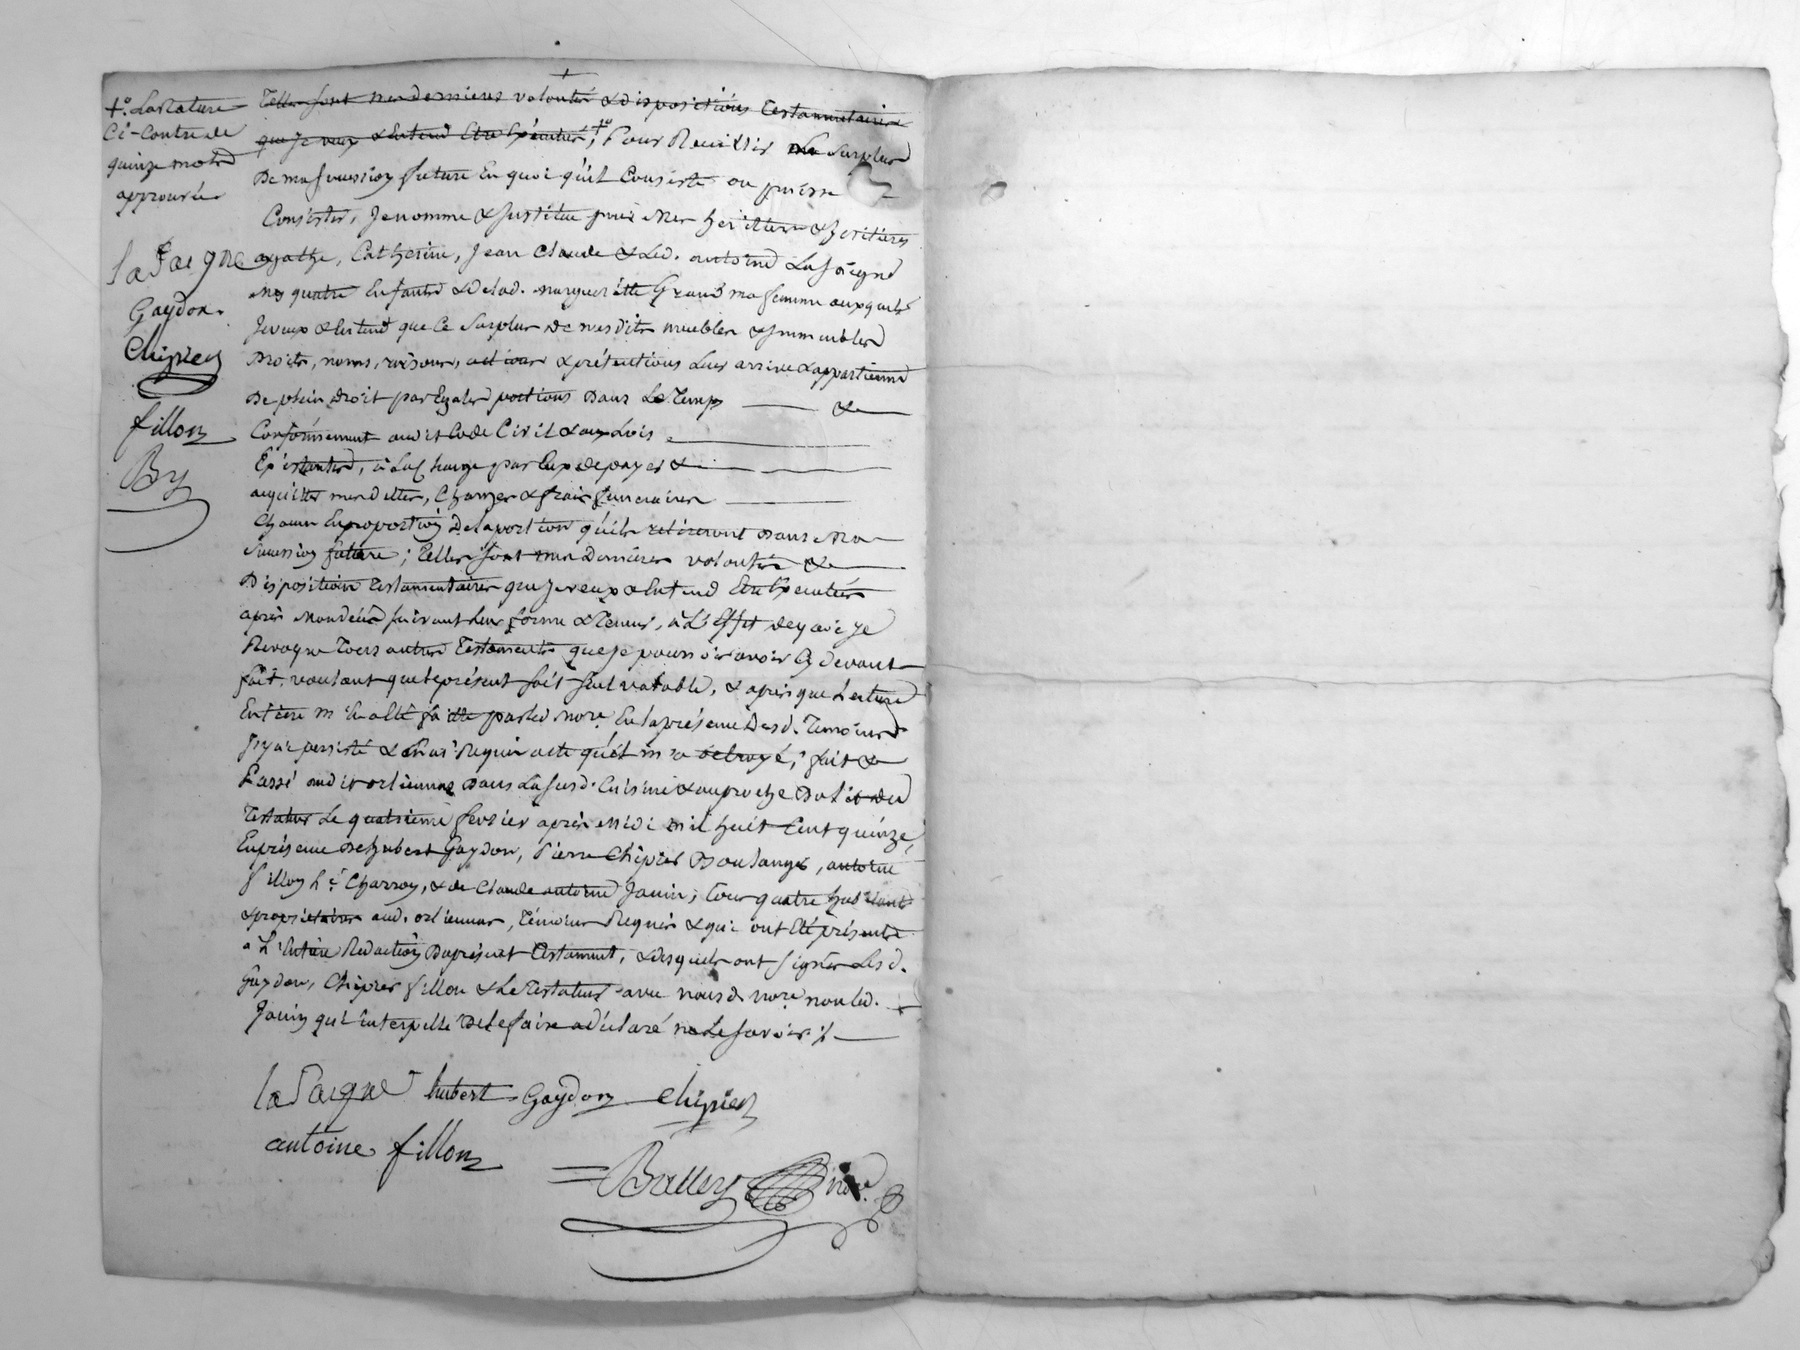 +o. La rature
ci-contre de
quinze mots
approuvée
la Saigne
Gaydon.
Chipier
fillon
By
Telles sont mes dernieres volontés & dispositions Testamentaires
que je veux & Entend Etre Exécutées +o; Pour Recueillir le Surplus
De ma succession future En quoi qu'il Consiste ou puisse
Consister, Je nomme & Institue pour Mes héritiers & héritières
agathe, Catherine, Jean Claude & Led. antoine La Saigne
Mes quatre Enfants & De lad. margueritte Grand ma femme auxquels
Je veux & Entend que Ce Surplus De mesdits meubles & Immeubles
Droits, noms, raisons, actions & prétentions Leur arrive & appartienne
De plein Droit par Egales portions Dans Le Temps &
Conformément audit Code Civil & aux Lois
Existantes, à La Charge par Eux de payer &
acquitter mes dettes, Charges & frais funeraires
Chacun En proportion De la portion qu'ils retireront Dans Ma
Succession future; Telles sont mes Dernières volontés &
Dispositions Testamentaires que Je veux & Entend Etre Exécutées
après Mon décès suivant leur forme & Teneur, à L'Effet de quoi Je
Revoque Tous autres Testaments que Je pourrois avoir Cy devant
fait, voulant que le présent soit seul valable, & après que Lecture
Entière m'En a Eté faitte par led. Nore. En la présence Des d. Temoins
J'y ai persisté & En ai Requis acte qu'il m'a octroyé; fait &
Passé audit orliennas Dans La susd. Cuisine & au proche Du lit du
Testateur Le quatrieme fevrier après Midi mil huit Cent quinze,
En présence De hubert Gaydon, Pierre Chipier Boulanger, antoine
fillon Charron, & de Claude antoine Jamin, Tous quatre habitants
& propriétaires aud. orliennas, Témoins Requis & qui ont Eté présents
a L'Entière Rédaction Du présent Testament, & desquels ont signés Lesd.
Gaydon, Chipier fillon & Le Testateur avec nous d. nore. non led.
Jamin qui interpellé De le faire a déclaré ne Le savoir ./.
la Saigne hubert Gaydon Chipier
antoine fillon
Balley nore.